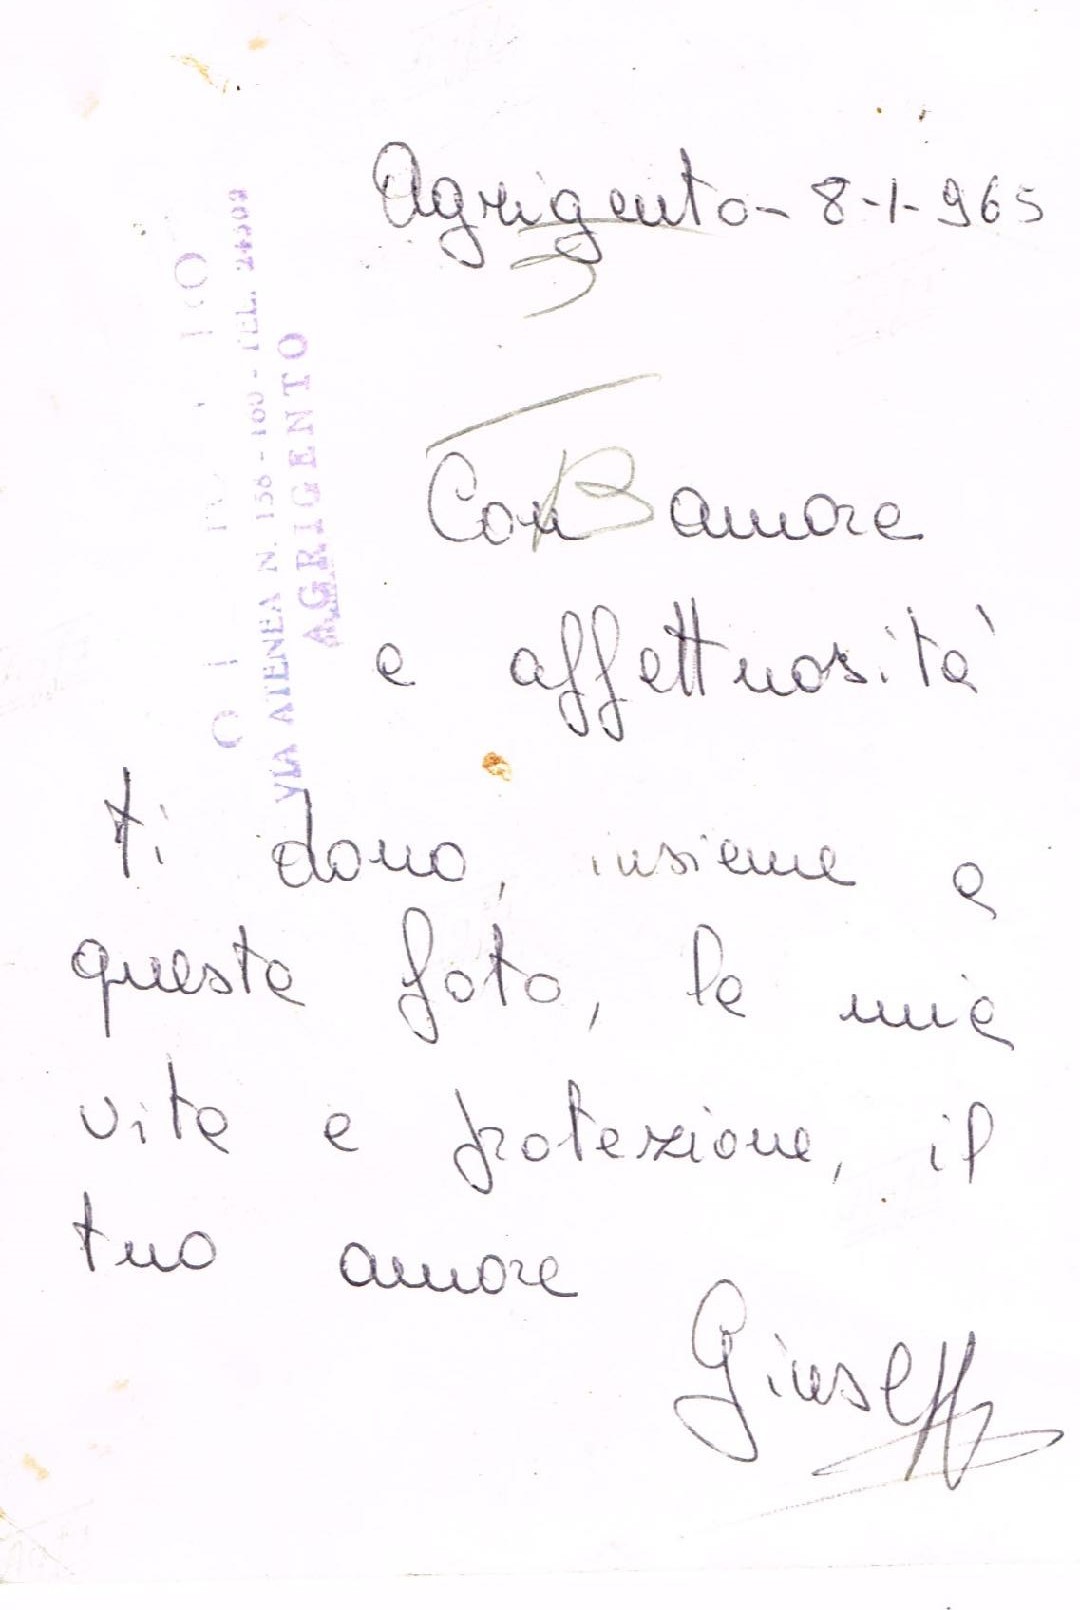 Agrigento - 8-1-965
Con amore
e affettuosità
ti dono, insieme a
questa foto, la mia
vita e protezione, il
tuo amore
Giuseppe
VIA ATENEA N. 158 - 160 - TEL.
AGRIGENTO